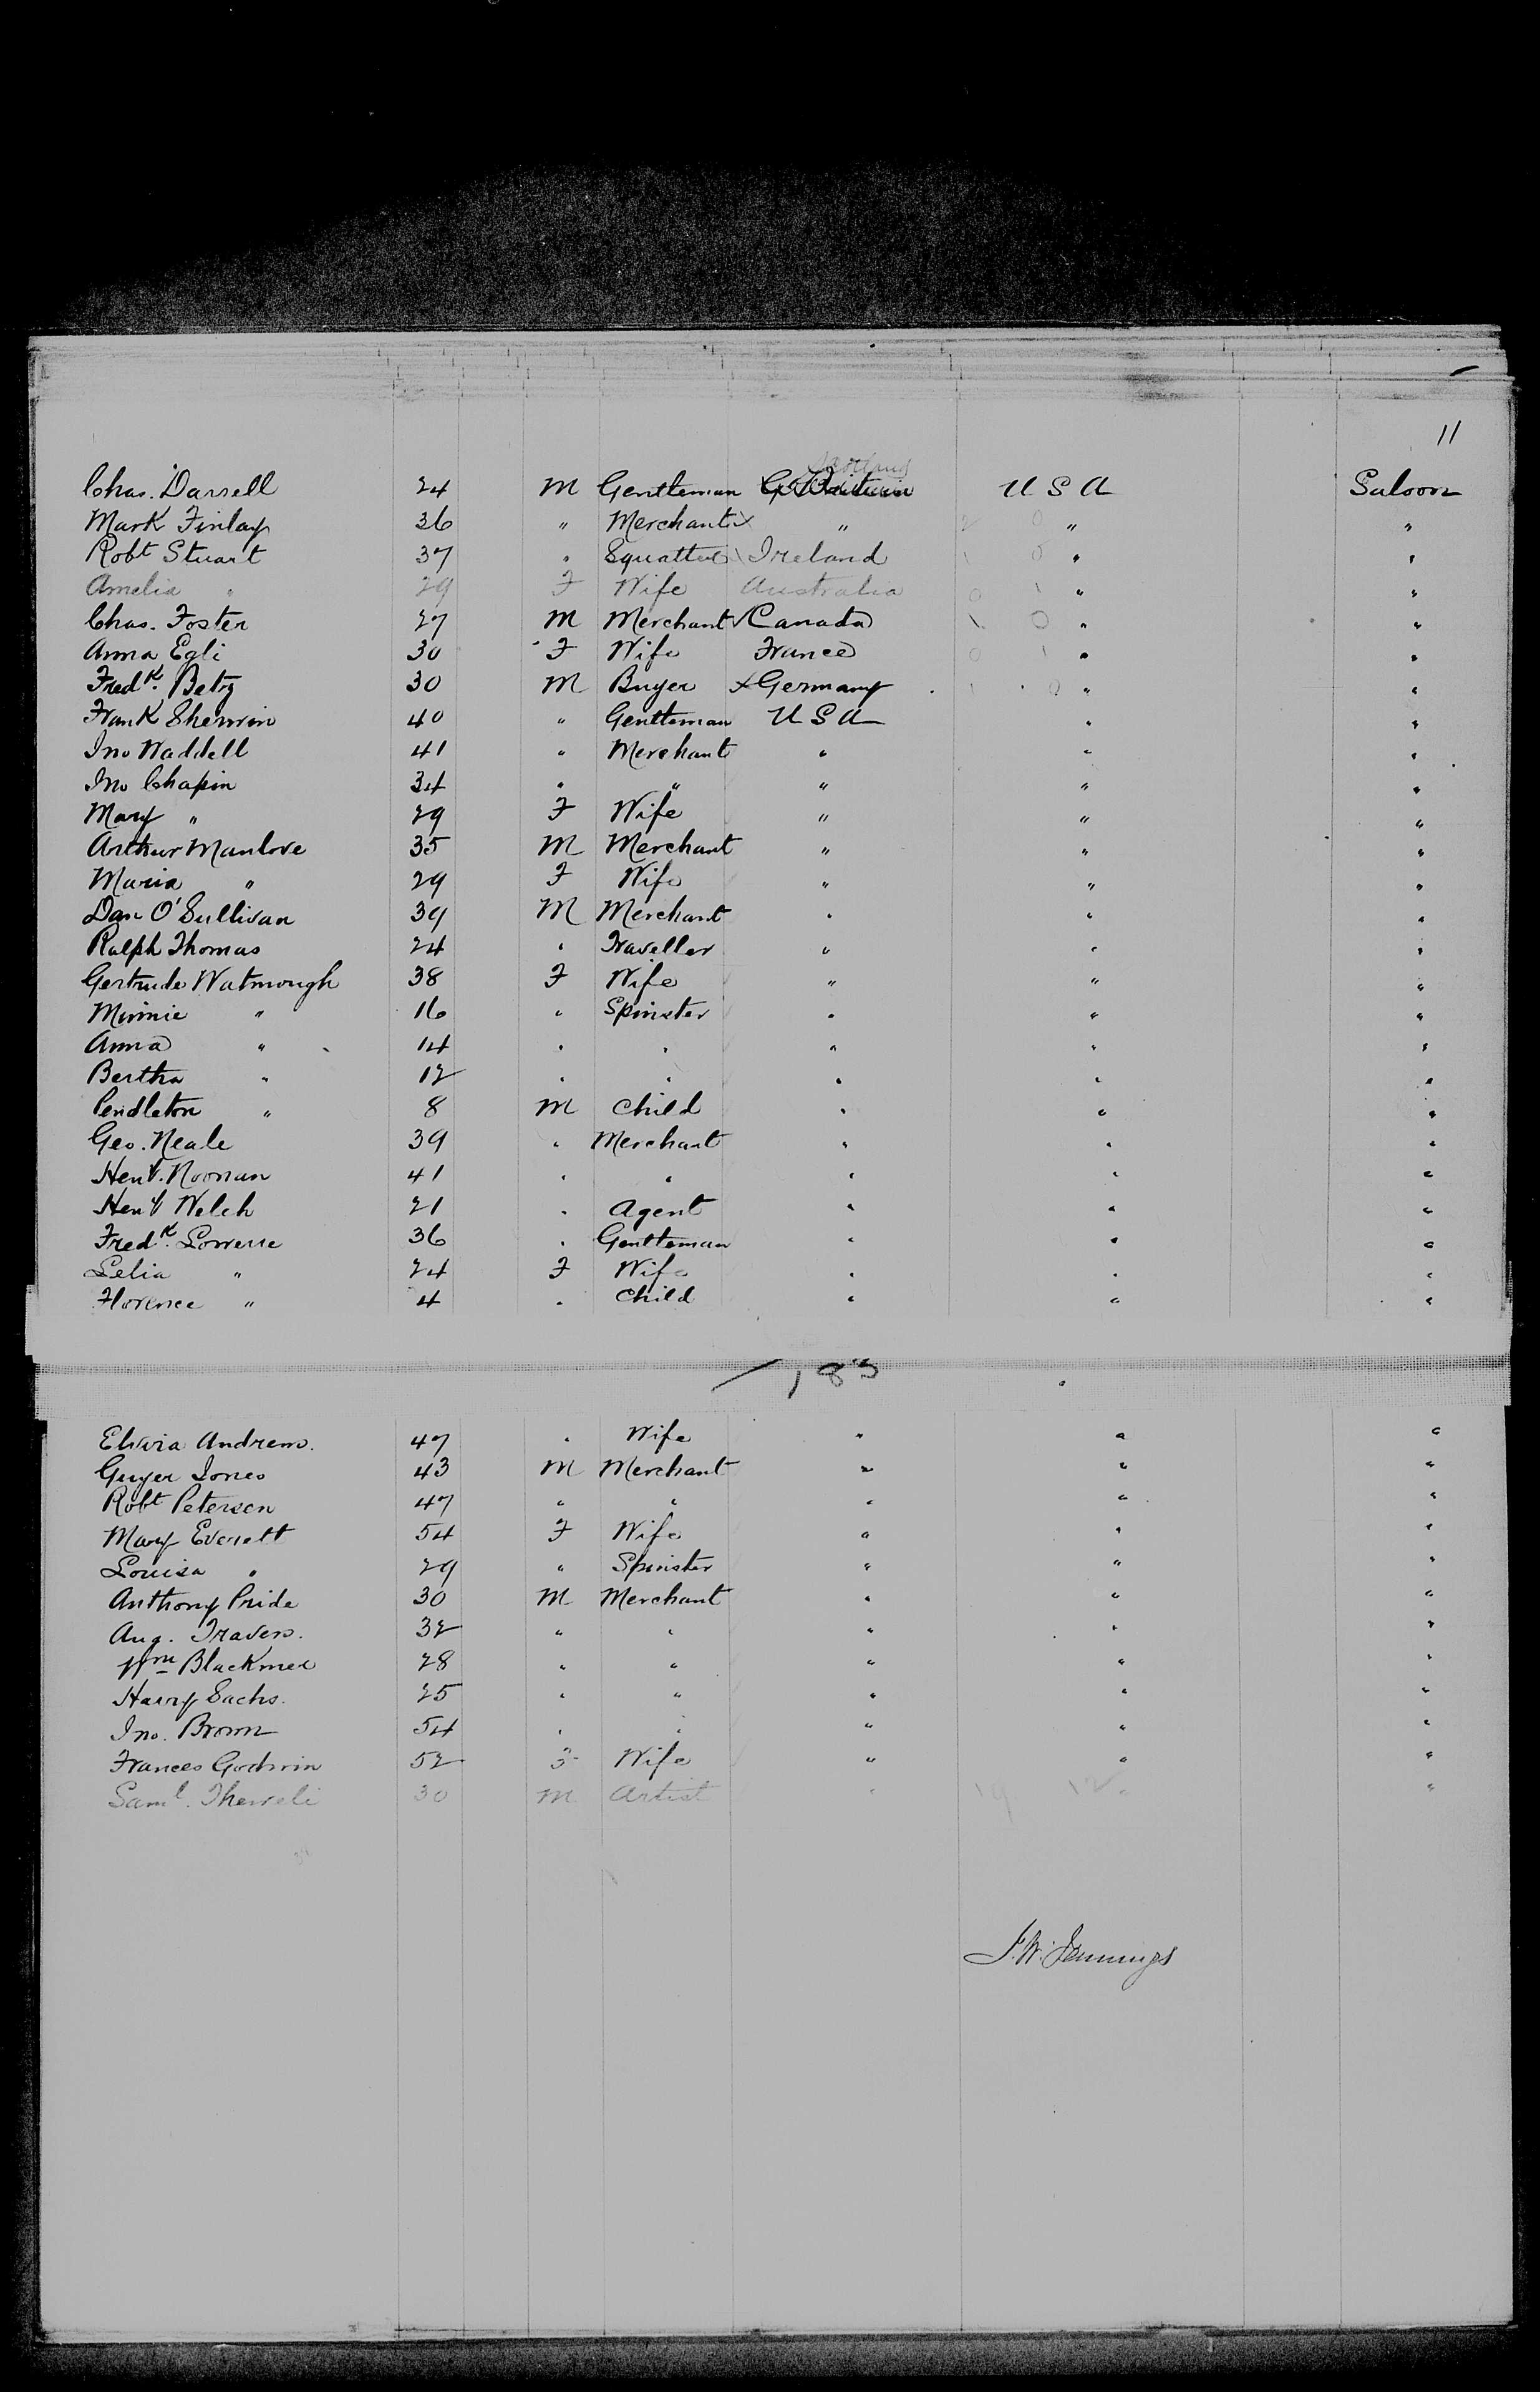 11
Scotland
Chas. Darrell 24 M Gentleman Gt Britain U S A Saloon
Mark Finlay 36 " Merchant " " "
Robt Stuart 37 " Squatter Ireland 1 0 " "
Amelia " 29 F Wife Australia 0 1 " "
Chas. Foster 27 M Merchant Canada 1 0 " "
Anna Egli 30 F Wife France 0 1 " "
Fredk. Betz 30 M Buyer Germany 1 0 " "
Frank Sherwin 40 " Gentleman U S A " "
Jno Waddell 41 " Merchant " " "
Jno Chapin 34 " " " " "
Mary " 29 F Wife " " "
Arthur Manlove 35 M Merchant " " "
Maria " 29 F Wife " " "
Dan O'Sullivan 39 M Merchant " " "
Ralph Thomas 24 " Traveller " " "
Gertrude Watmough 38 F Wife " " "
Minnie " 16 " Spinster " " "
Anna " 14 " " " " "
Bertha " 12 " " " " "
Pendleton " 8 M Child " " "
Geo. Neale 39 " Merchant " " "
Heny. Noonan 41 " " " " "
Heny Welch 21 " Agent " " "
Fredk. Lowerre 36 " Gentleman " " "
Lelia " 24 F Wife " " "
Florence " 4 " Child " " "
183
Elvira Andrews. 47 " Wife " " "
Guyer Jones 43 M Merchant " " "
Robt Petersen 47 " " " " "
Mary Everett 54 F Wife " " "
Louisa " 29 " Spinster " " "
Anthony Pride 30 M Merchant " " "
Aug. Travers. 32 " " " " "
Wm Blackmer 28 " " " " "
Harry Sachs. 25 " " " " "
Jno. Brown 54 " " " " "
Frances Godwin 52 F Wife " " "
Saml. 30 M Artist " 19 12 " "
J. W. Jennings